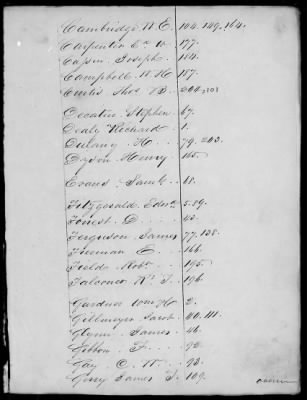 Cambridge W. E. 104. 149. 164.
Carpenter Ed. W. 177.
Capen Joseph. 184.
Campbell W. H. 187.
Curtis Thos. B. 200, 203
Decatur Stephen 67.
Dealy Richard 1.
Dulany. H. 79. 203.
Dyson Henry 165.
Evans. Saml. 68.
Fitzgerald Edwd. 5.89.
Forrest. D. 43.
Ferguson James 77. 138.
Freeman E. 166.
Fields Robt. 195.
Falconer W. J. 196.
Gardner Wm H. 2.
Gillmeyer Jacob 40. 111.
Glynn James. 46.
Gibbon F. 92.
Gay C. W. 93.
Gerry James T. 109.